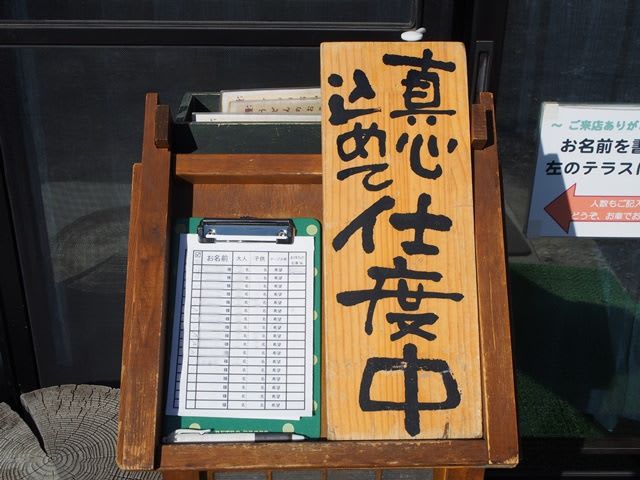 真心
込めて
仕度中
お名前 大人 子供
～ご来店ありが
お名前を書
左のテラスに
人数もご記入
どうぞ、お車でお